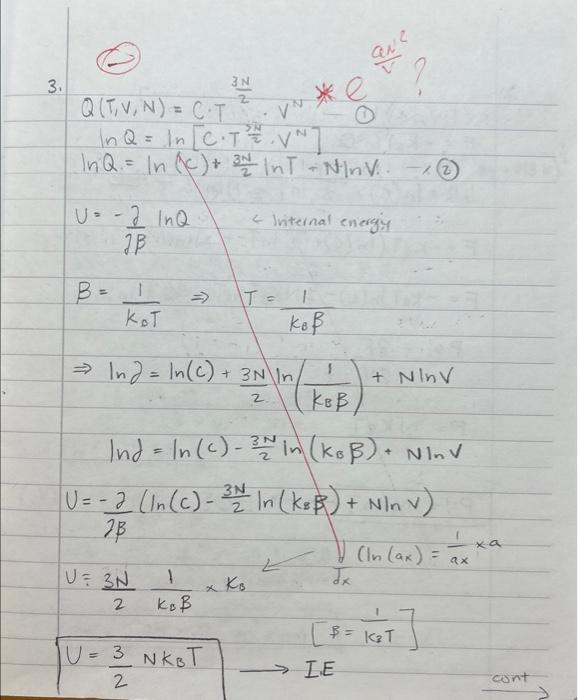 aN²/V
* e ?
3.
Q(T,V,N) = C·T^(3N/2) · V^N — ①
ln Q = ln [C·T^(3N/2) · V^N]
ln Q = ln (c) + 3N/2 ln T + N ln V. — ②
U = -∂/∂β ln Q ← Internal energy
β = 1/(K_B T) ⇒ T = 1/(K_B β)
⇒ ln∂ = ln(c) + 3N/2 ln(1/(K_B β)) + N ln V
ln∂ = ln(c) - 3N/2 ln(K_B β) + N ln V
U = -∂/∂β (ln(c) - 3N/2 ln(K_B β) + N ln V)
d/dx (ln(ax) = 1/ax × a
U = 3N/2 1/(K_B β) × K_B
[β = 1/(K_B T)]
U = 3/2 N K_B T → I.E
cont →